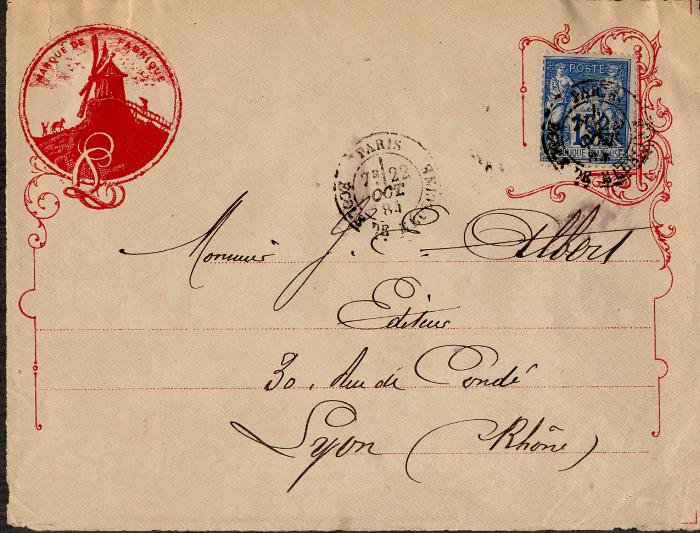 MARQUE DE FABRIQUE
POSTE
15
PARIS
7E 22
OCT
Monsieur J. Albert
Editeur
30, Rue de Condé
Lyon (Rhône)